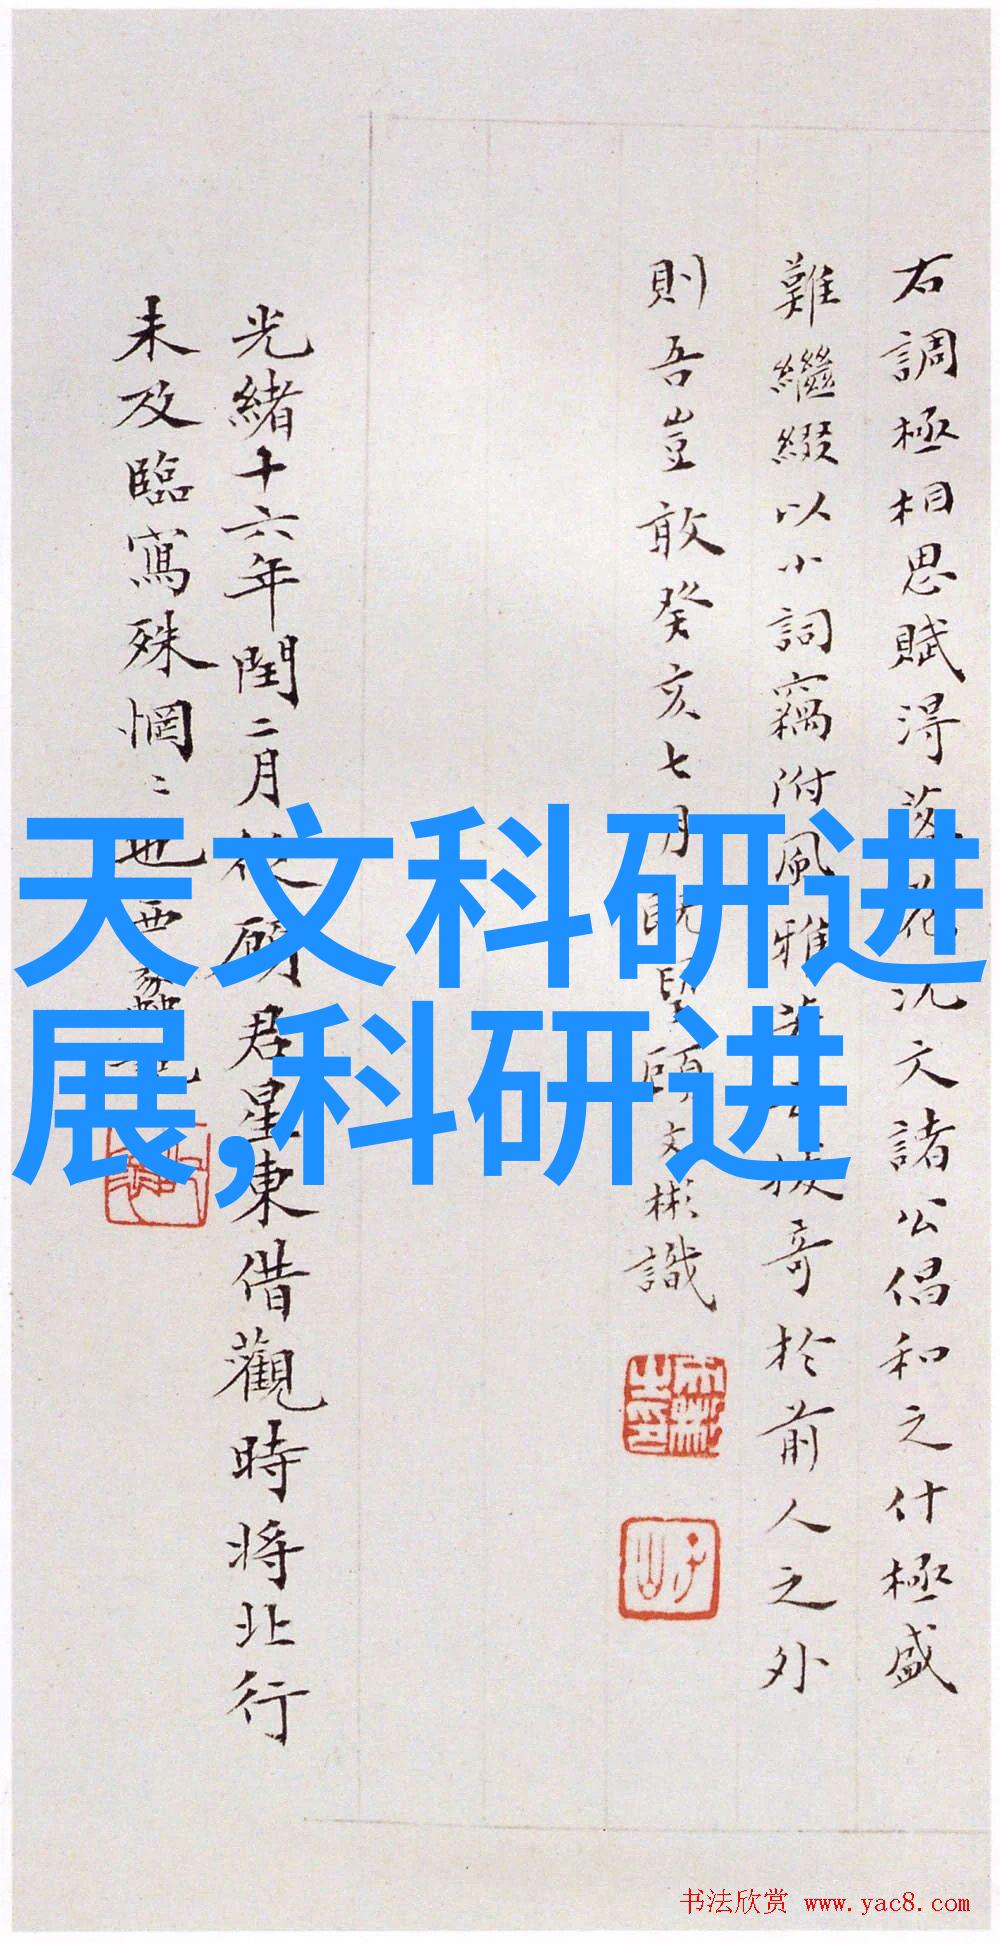 右調極相思賦得落花沈文諸公倡和之什極盛
難繼綴以小詞竊附風雅
哥於前人之外
則吾豈敢癸亥七月既望顧文彬識
光緒十六年閏二月從顧君星東借觀時將北行
未及臨寫殊惘〻也西蠡
天文科研进
展,科研进
书法欣赏 www.yac8.com